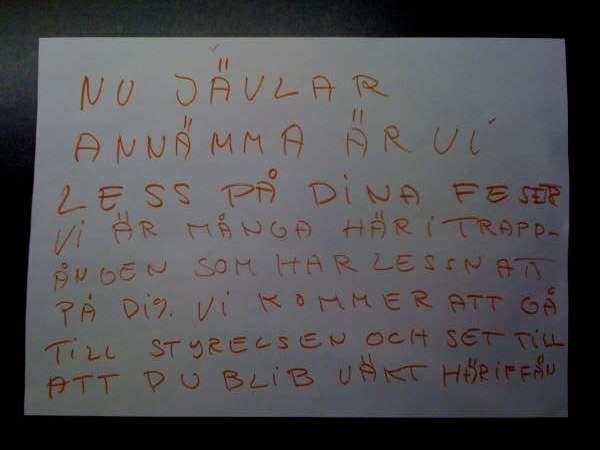 NU JÄVLAR
ANNÄMMA ÄR VI
LESS PÅ DINA FESER
VI ÄR MÅNGA HÄR I TRAPP-
ÅNGEN SOM HAR LESSNATT
PÅ DIG. VI KOMMER ATT GÅ
TILL STYRELSEN OCH SET TILL
ATT DU BLIB VÄKT HÄRIFFÅN